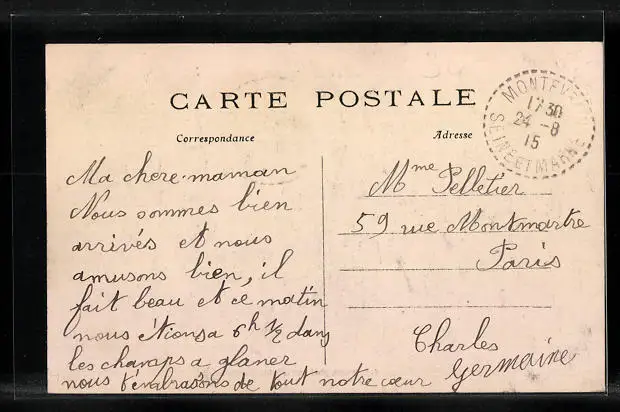 CARTE POSTALE
Correspondance
Adresse
MONTEV
17 30
24 - 8
15
SEINE ET MARNE
Ma chere maman
Nous sommes bien
arrivés et nous
amusons bien, il
fait beau et ce matin
nous étions a 6h 1/2 dans
les champs a glaner
nous t'embrassons de tout notre cœur
Mme Pelletier
59 rue Montmartre
Paris
Charles
Germaine